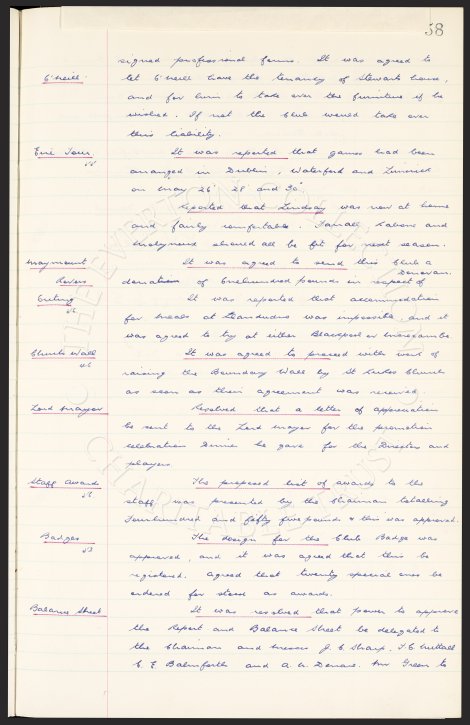 58
signed professional forms. It was agreed to
O'Neill. let O'Neill have the tenancy of Stewarts house,
and for him to take over the furniture if he
wished. If not the Club would take over
this liability.
Eire Tour. It was reported that games had been
arranged in Dublin, Waterford and Limerick
on May 26 28 and 30
Reported that Lindsay was now at home
and fairly comfortable. Farrall, Labone and
should all be fit for next season.
It was agreed to send this Club a
Donovan.
Rovers donation of Onehundred pounds in respect of
Outing It was reported that accommodation
for meals at Llandudno was impossible and it
was agreed to try at either Blackpool or Morecambe.
Church Wall It was agreed to proceed with work of
raising the Boundary Wall by St Lukes Church
as soon as their agreement was received
Lord Mayor Resolved that a letter of appreciation
be sent to the Lord Mayor for the promotion
celebration Dinner he gave for the Directors and
players.
Staff Awards The proposed list of awards to the
staff was presented by the Chairman totalling
Fourhundred and fifty five pounds & this was approved.
Badges The design for the Club Badge was
approved, and it was agreed that this be
registered. Agreed that twenty special ones be
ordered for stock as awards.
Balance Sheet It was resolved that power to approve
the Report and Balance Sheet be delegated to
the Chairman and Messrs J. C. Sharp, T. C. Nuttall
C. E. Balmforth and A. W. Denaro. Mr Green to
© THE EVERTON COLLECTION
CHARITABLE TRUST